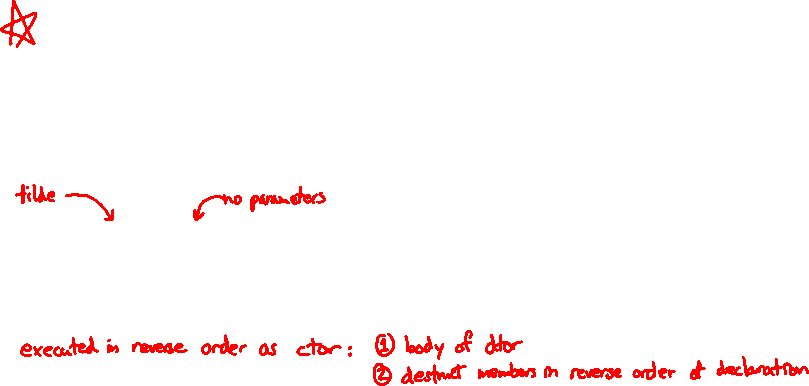 tilde
no parameters
executed in reverse order as ctor: ① body of dtor
② destruct members in reverse order of declaration